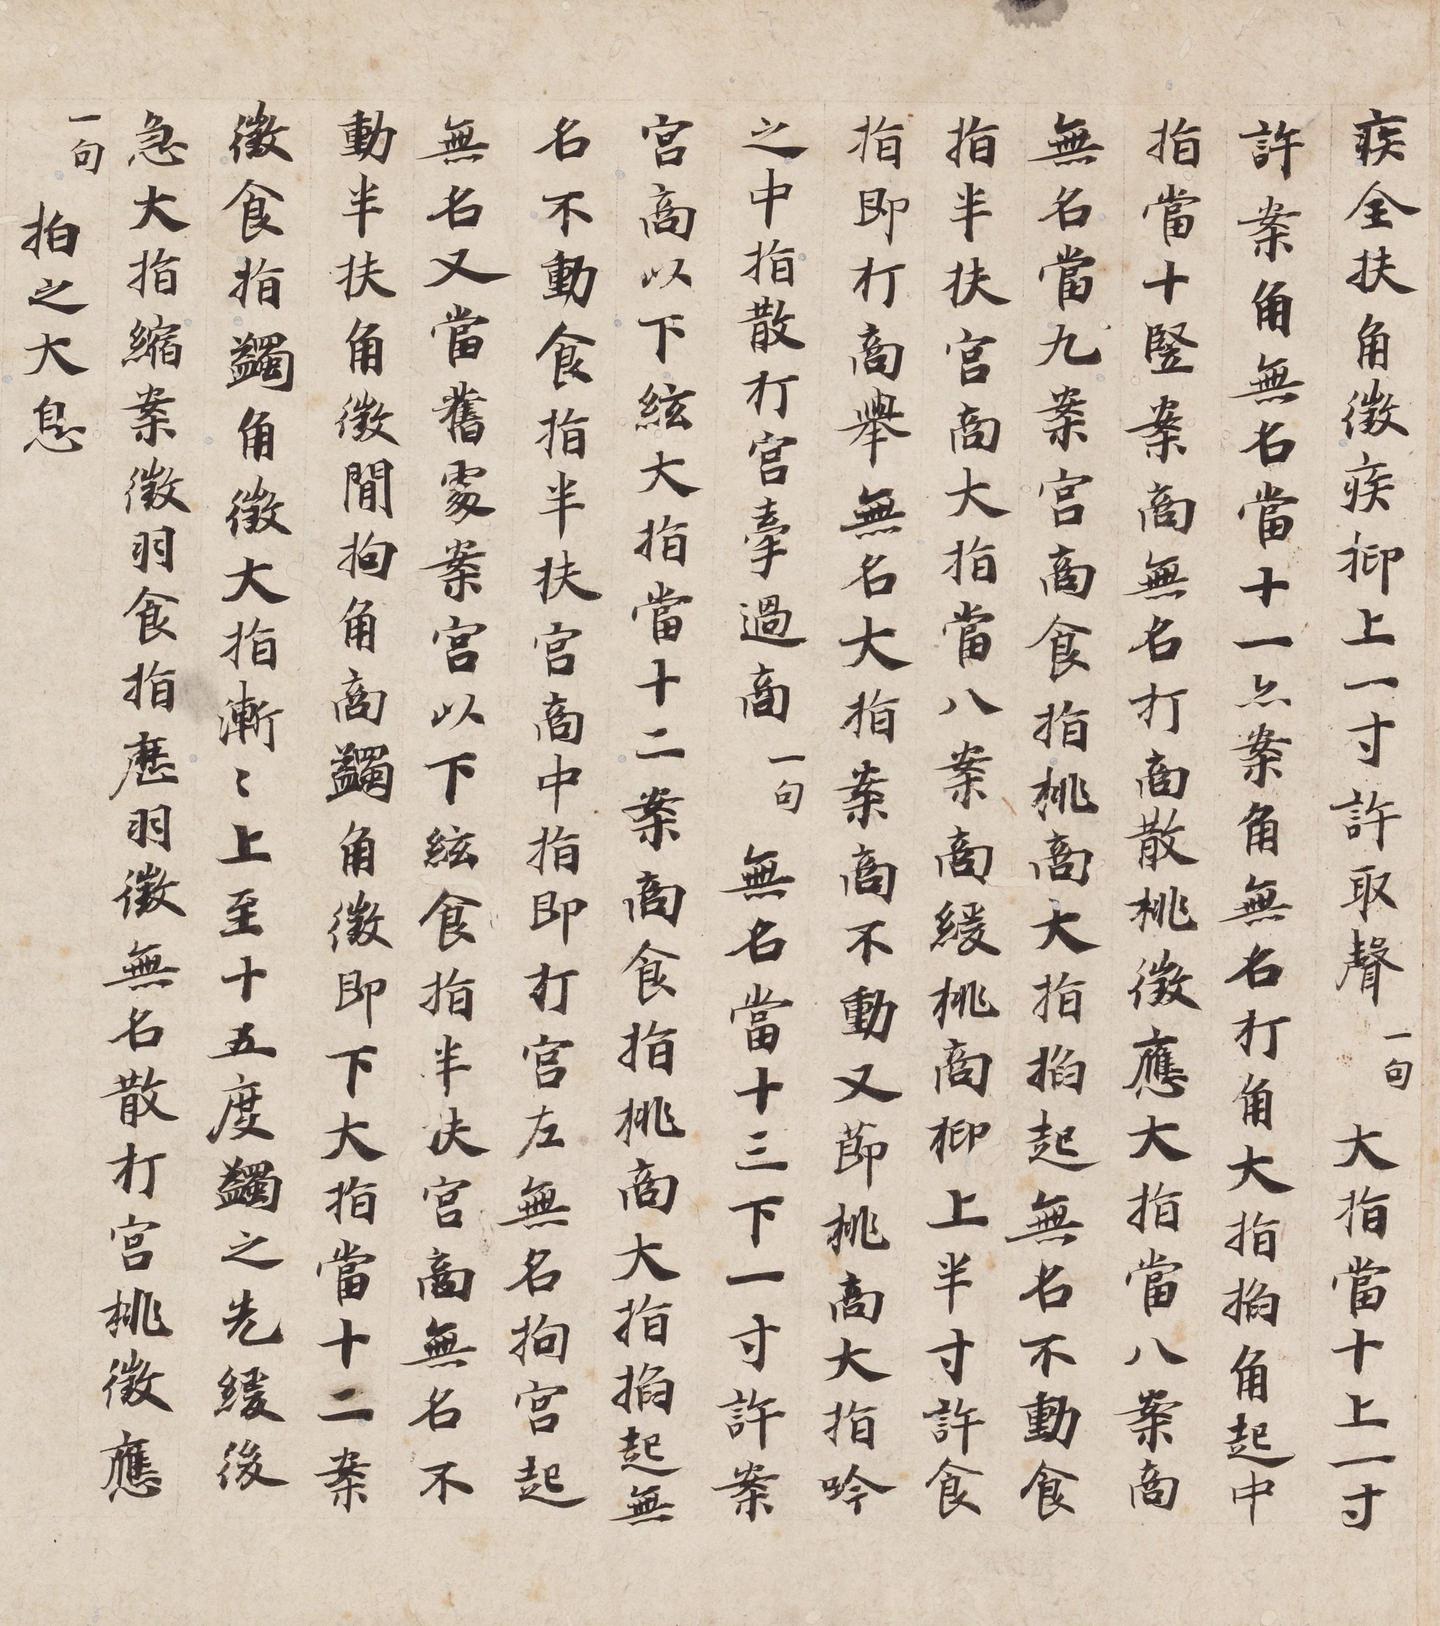 疾全扶角徵疾抑上一寸許取聲一句大指當十上一寸
許案角無名當十一亦案角無名打角大指掐角起中
指當十竪案商無名打商散挑徵應大指當八案商
無名當九案宮商食指挑商大指掐起無名不動食
指半扶宮商大指當八案商緩挑商抑上半寸許食
指即打商舉無名大指案商不動又節挑商大指吟
之中指散打宮牽過商一句無名當十三下一寸許案
宮商以下絃大指當十二案商食指挑商大指掐起無
名不動食指半扶宮商中指即打宮左無名拘宮起
無名又當舊處案宮以下絃食指半扶宮商無名不
動半扶角徵間拘角商蠲角徵即下大指當十二案
徵食指蠲角徵大指漸〻上至十五度蠲之先緩後
急大指縮案徵羽食指歷羽徵無名散打宮挑徵應
一句拍之大息